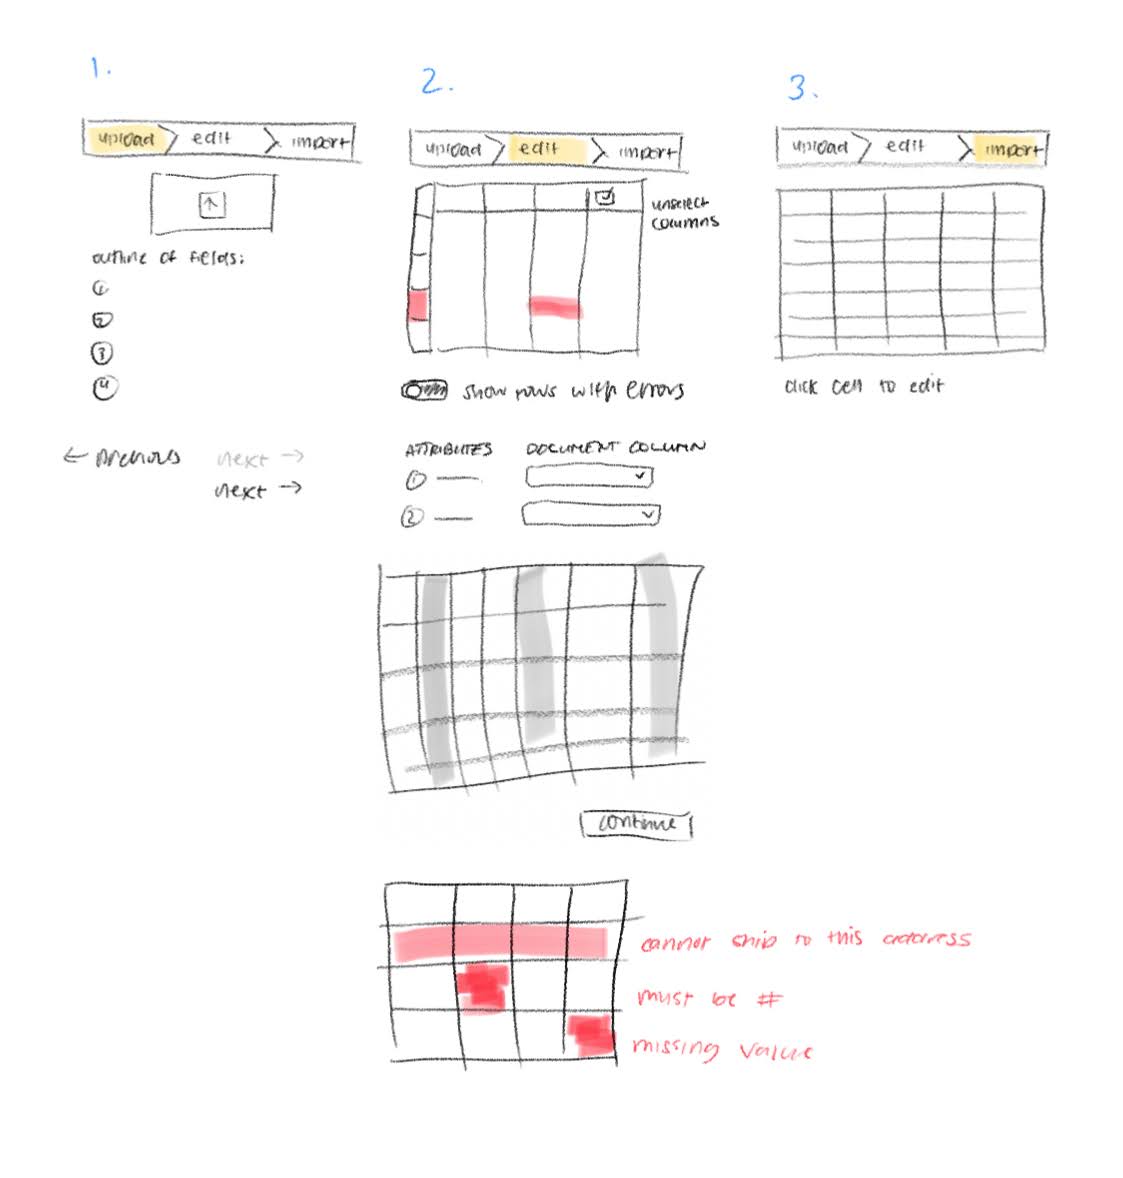 1.
upload edit import
outline of fields:
1
2
3
4
← previous next →
next →
2.
upload edit import
unselect
columns
show rows with errors
ATTRIBUTES DOCUMENT COLUMN
1
2
continue
cannot ship to this address
must be #
missing value
3.
upload edit import
click cell to edit